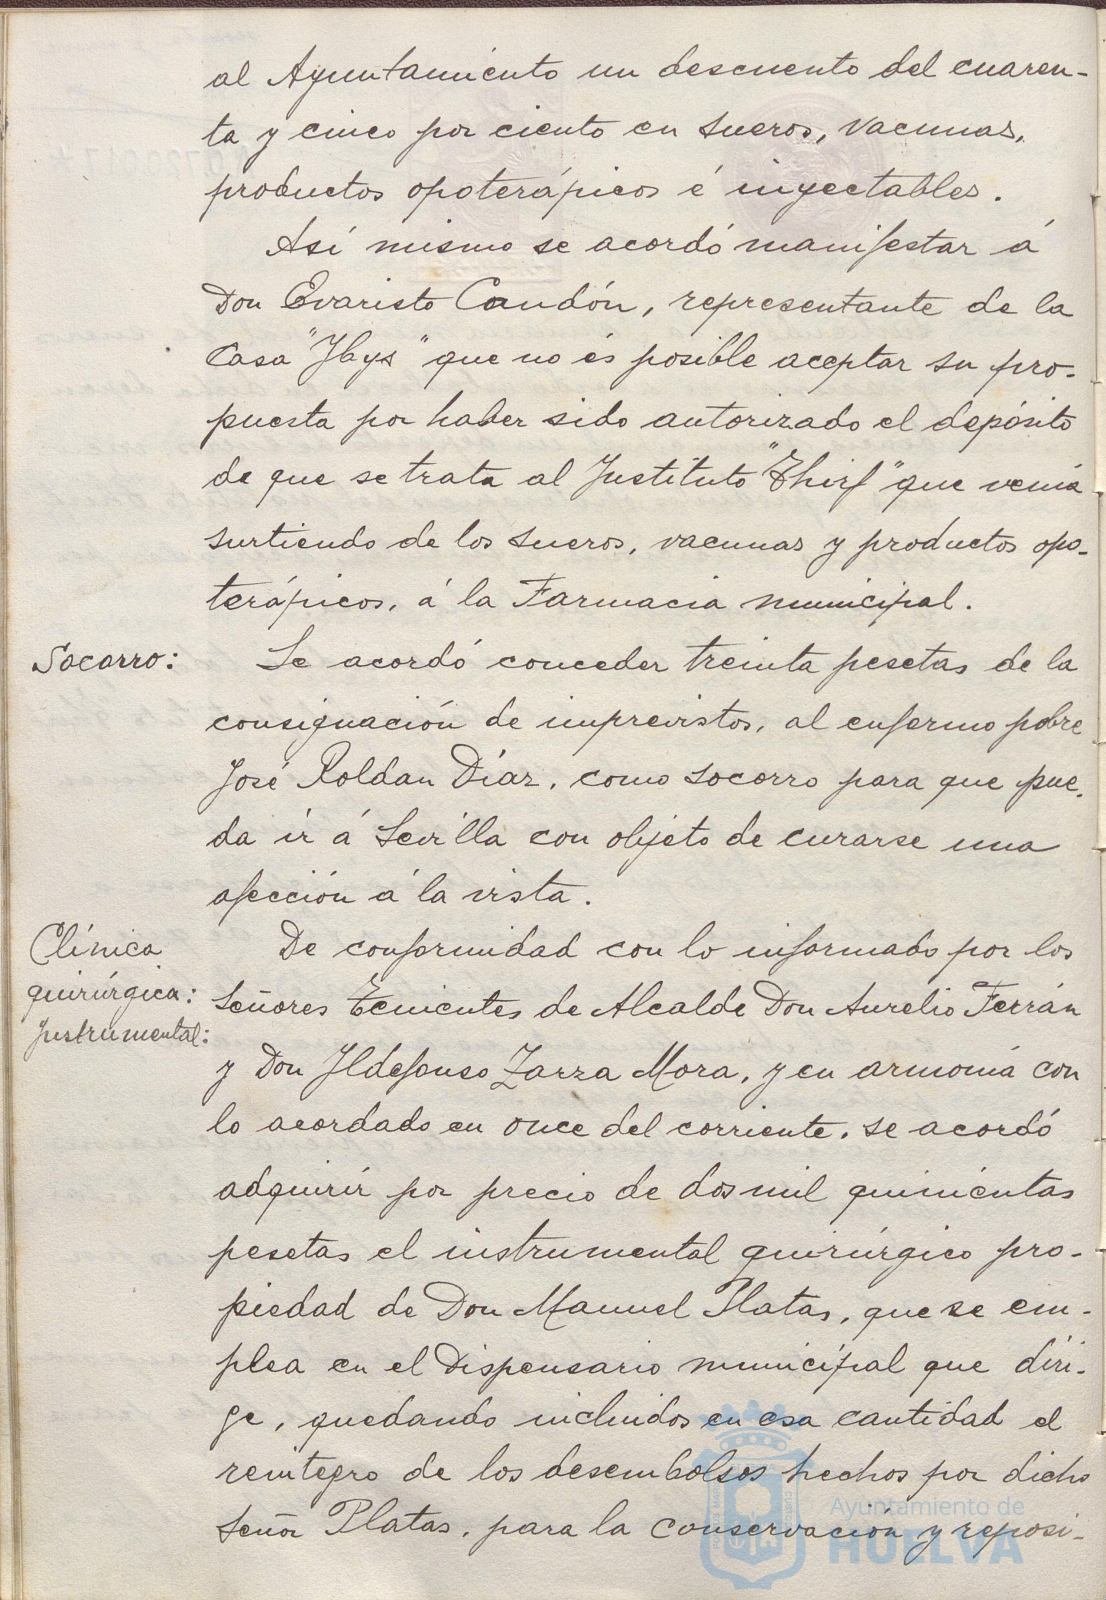 al Ayuntamiento un descuento del cuaren-
ta y cinco por ciento en sueros, vacunas,
productos opoterápicos é inyectables.
Así mismo se acordó manifestar á
Don Evaristo Candón, representante de la
Casa "Ybys" que no és posible aceptar su pro-
puesta por haber sido autorizado el depósito
de que se trata al Justituto "Thirf" que venía
surtiendo de los sueros, vacunas y productos opo-
terápicos, á la Farmacia municipal.
Socorro:
Se acordó conceder treinta pesetas de la
consignación de imprevistos, al enfermo pobre
José Roldan Díaz, como socorro para que pue-
da ir á Sevilla con objeto de curarse una
afección á la vista.
Clínica
quirúrgica:
Instrumental:
De conformidad con lo informado por los
Señores Tenientes de Alcalde Don Aurelio Ferrán
y Don Ildefonso Zarza Mora, y en armonía con
lo acordado en once del corriente, se acordó
adquirir por precio de dos mil quinientas
pesetas el instrumental quirúrgico pro-
piedad de Don Manuel Platas, que se em-
plea en el Dispensario municipal que diri-
ge, quedando incluidos en esa cantidad el
reintegro de los desembolsos hechos por dicho
Señor Platas, para la conservación y reposi-
Ayuntamiento de
HUELVA